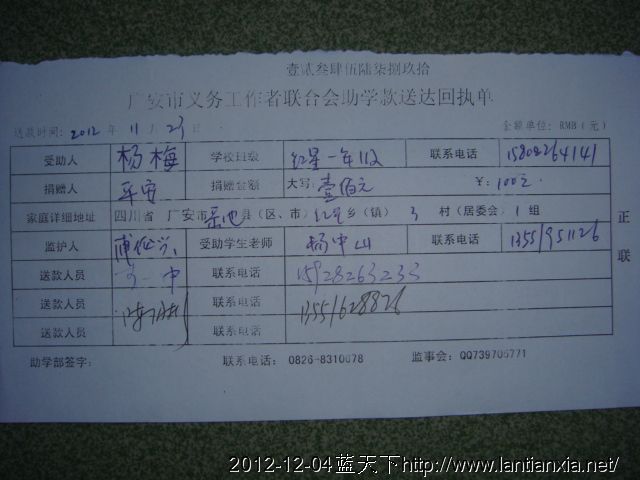 壹贰叁肆伍陆柒捌玖拾
广安市义务工作者联合会助学款送达回执单
送款时间：2012 年 11 月 23 日 金额单位：RMB（元）
受助人 杨梅 学校班级 红星一年112 联系电话 15808264141
捐赠人 平安 捐赠金额 大写：壹佰元 ￥：100元
家庭详细地址 四川省 广安市岳池县（区、市）红星乡（镇） 3 村（居委会）1 组
监护人 受助学生老师 杨中山 联系电话 13551951126
送款人员 联系电话 15928263233
送款人员 联系电话 13551628826
送款人员 联系电话
正联
助学部签字： 联系电话：0826-8310678 监事会：QQ739706771
2012-12-04蓝天下http://www.lantianxia.net/